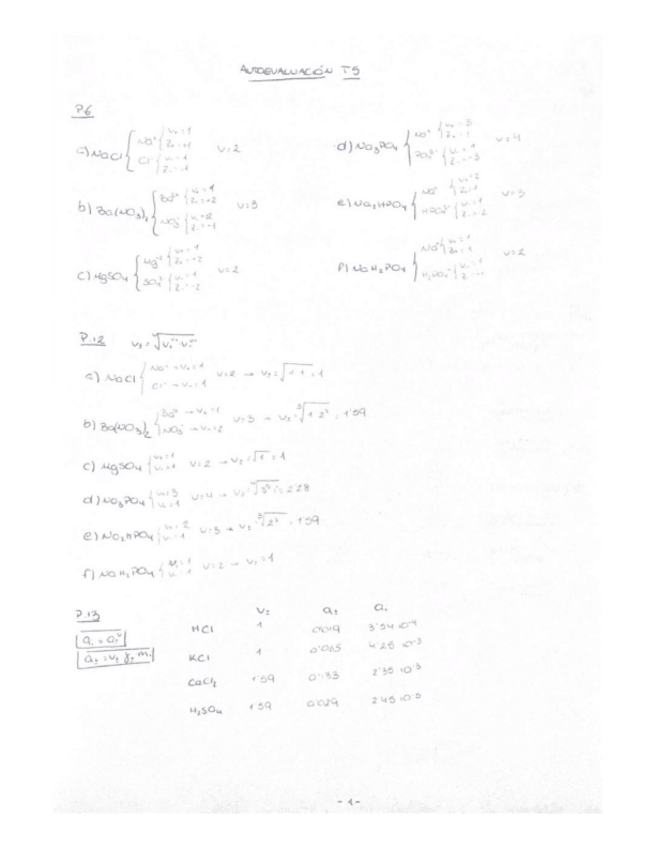 AUTOEVALUACIÓN T5
P.6
a) NaCl { Na⁺ { ν₊ = 1 Z₊ = +1 Cl⁻ { ν₋ = 1 Z₋ = -1 ν = 2
b) Ba(NO₃)₂ { Ba²⁺ { ν₊ = 1 Z₊ = +2 NO₃⁻ { ν₋ = 2 Z₋ = -1 ν = 3
c) MgSO₄ { Mg²⁺ { ν₊ = 1 Z₊ = +2 SO₄²⁻ { ν₋ = 1 Z₋ = -2 ν = 2
d) Na₃PO₄ { Na⁺ { ν₊ = 3 PO₄³⁻ { ν₋ = 1 Z₋ = -3 ν = 4
e) Na₂HPO₄ { Na⁺ { ν₊ = 2 HPO₄²⁻ { ν₋ = 1 Z₋ = -2 ν = 3
f) NaH₂PO₄ { Na⁺ { ν₊ = 1 H₂PO₄⁻ { ν₋ = 1 ν = 2
P.12
a) NaCl { Na⁺ → ν₊ = 1 Cl⁻ → ν₋ = 1 ν = 2 → ν± = √1·1 = 1
b) Ba(NO₃)₂ { Ba²⁺ → ν₊ = 1 NO₃⁻ → ν₋ = 2 ν = 3 → ν± = ³√1·2² = 1'59
c) MgSO₄ { ν₊ = 1 ν₋ = 1 ν = 2 → ν± = √1 = 1
d) Na₃PO₄ { ν₊ = 3 ν₋ = 1 ν = 4 → ν± = ⁴√3³·1 = 2'28
e) Na₂HPO₄ { ν₊ = 2 ν₋ = 1 ν = 3 → ν± = ³√2² = 1'59
f) NaH₂PO₄ { ν₊ = 1 ν₋ = 1 ν = 2 → ν± = 1
P.13
ν± a± aᵢ
aᵢ = a±^ν
a± = ν± γ± mᵢ
HCl 1 0'019 3'54·10⁻⁴
KCl 1 0'065 4'25·10⁻³
CaCl₂ 1'59 0'133 2'35·10⁻³
H₂SO₄ 1'59 0'029 2'45·10⁻⁵
- 1 -